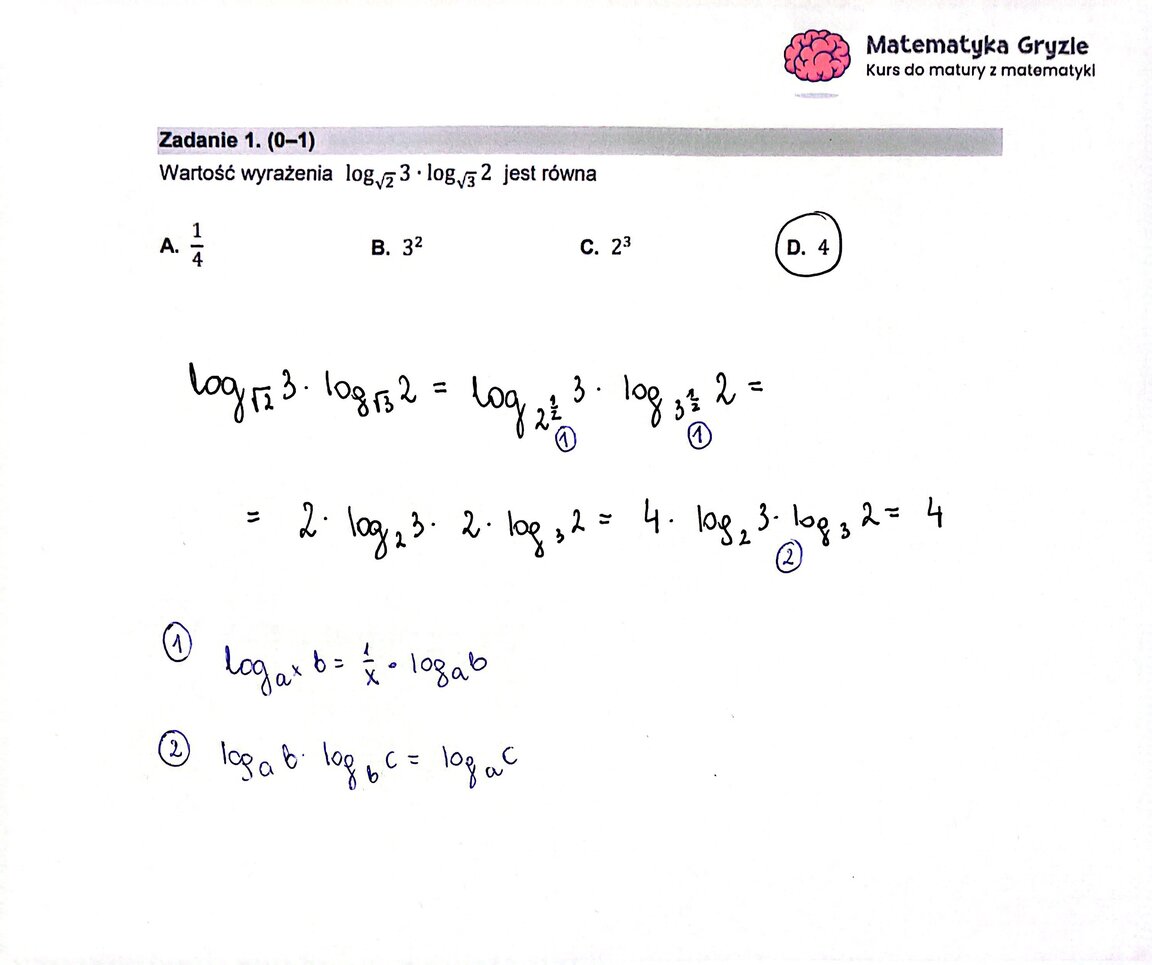 Matematyka Gryzie
Kurs do matury z matematyki
Zadanie 1. (0–1)
Wartość wyrażenia log_√2 3 · log_√3 2 jest równa
A. 1/4 B. 3² C. 2³ D. 4
log_√2 3 · log_√3 2 = log_2^(1/2) 3 · log_3^(1/2) 2 =
① ①
= 2 · log_2 3 · 2 · log_3 2 = 4 · log_2 3 · log_3 2 = 4
②
① log_a^x b = 1/x · log_a b
② log_a b · log_b c = log_a c